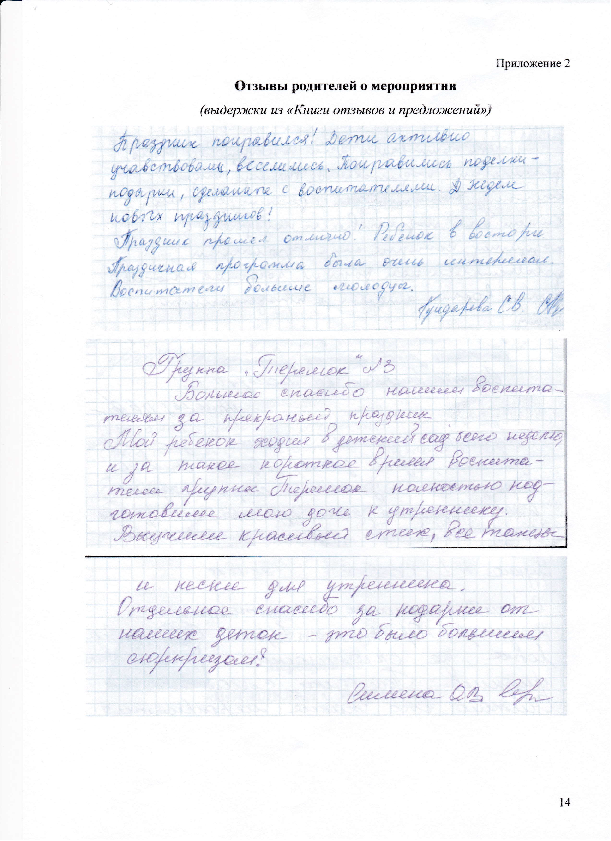 Приложение 2
Отзывы родителей о мероприятии
(выдержки из «Книги отзывов и предложений»)
Праздник понравился! Дети активно
учавствовали, веселились. Понравились поделки-
подарки, сделанные с воспитателями. Ждем
новых праздников!
Праздник прошел отлично! Ребенок в восторге
Праздичная программа была очень интересной.
Воспитатели большие молодцы.
С.В.
Группа „Теремок" №3
Большое спасибо нашим воспита-
телям за прекрасный праздник
Мой ребенок ходил в детский сад всего неделю,
и за такое короткое время воспита-
тели группы Теремок полностью под-
готовили мою дочь к утреннику.
Выучили красивый стих, все танцы
и песни для утренника.
Отдельное спасибо за подарки от
наших деток - это было большим
сюрпризом!